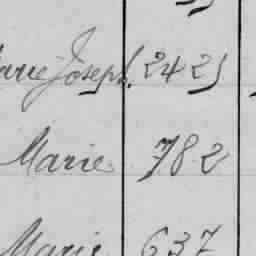 Marie Joseph. 2421
Marie 782
Marie 637